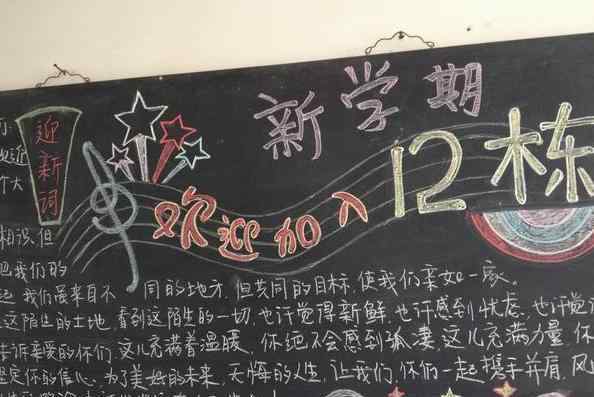 新学期
迎新词
欢迎加入
12栋
相识,但
把我们的
起 我们虽来自不同的地方,但共同的目标,使我们亲如一家。
这陌生的土地,看到这陌生的一切,也许觉得新鲜,也许感到忧虑,也许觉
告诉亲爱的你们,这儿充满着温暖,你绝不会感到孤凄,这儿充满力量,
坚定你的信心,为了美好的未来,无悔的人生,让我们、你们一起携手并肩,风